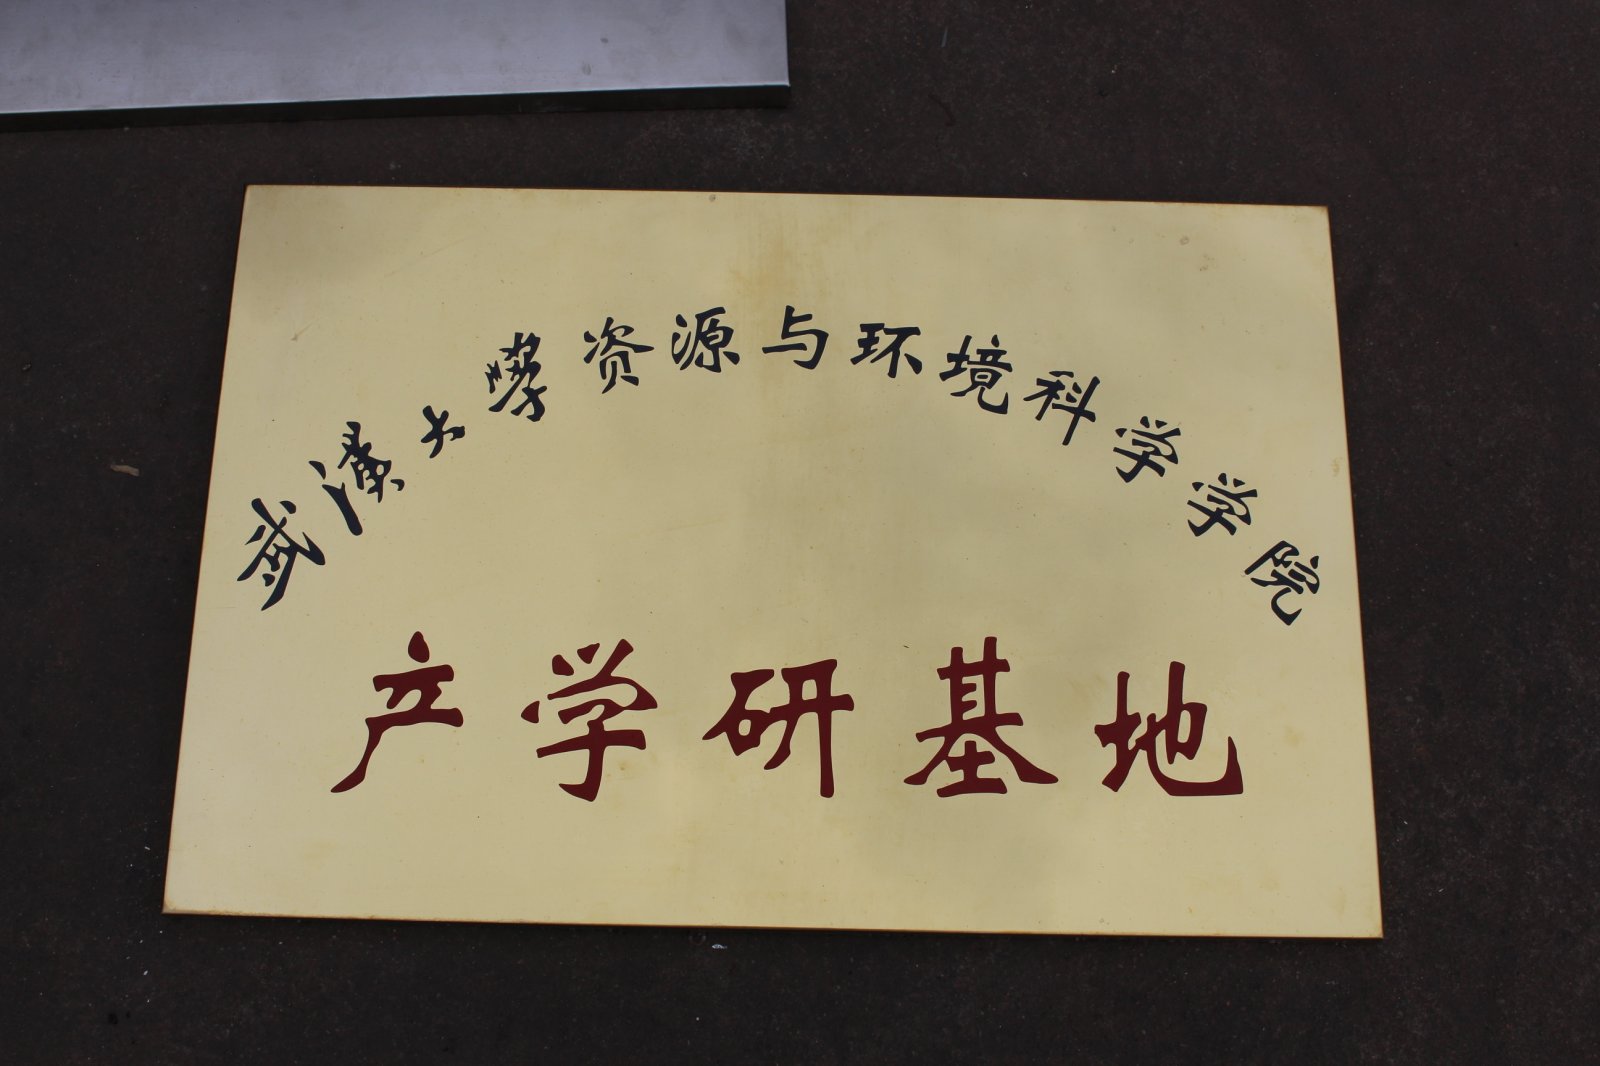 武漢大學资源与环境科学学院
产学研基地